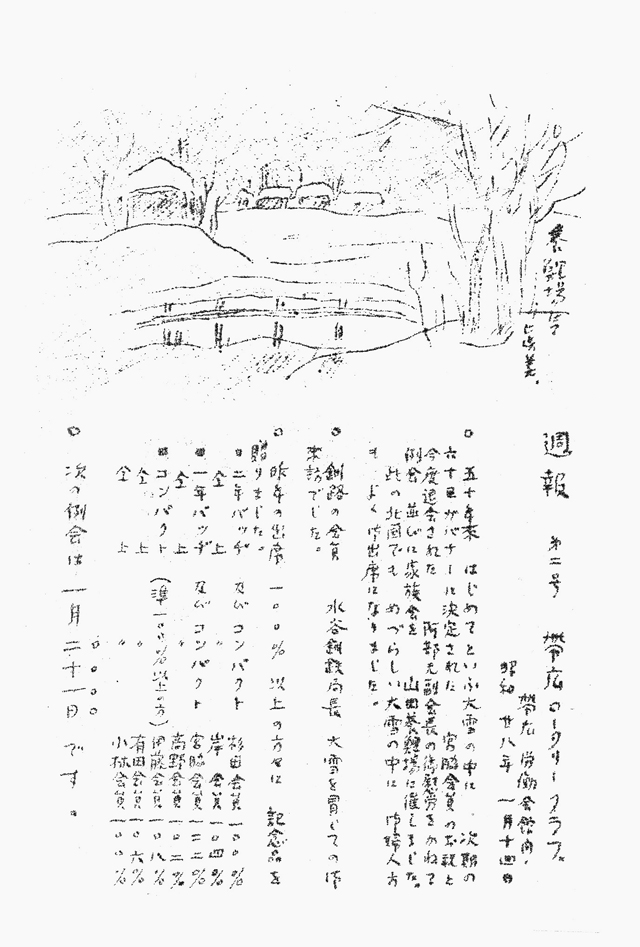 養鯉場にて
週報 第二号 帯広ロータリークラブ
帯広労働会館内
昭和廿八年 一月十四日
○ 五十年来 はじめてといふ大雪の中に 次期の
六十区ガバナーに決定された 宮脇会員のお祝と
今度退会された 阿部元副会長の御慰労をかねて
例会並びに家族会を 山田養鯉場に催しました。
此の北国でも めづらしい大雪の中に 御婦人方
も よく御出席になりました。
○ 釧路の会員 水谷釧鉄局長 大雪を冒しての御
来訪でした。
○ 昨年の出席 一〇〇% 以上の方々に 記念品を
贈りました。
■二年バッヂ 及ビコンパクト 杉田会員一〇〇%
仝 上 〃 岸 会員一〇四%
■一年バッヂ 及ビコンパクト 宮脇会員一二二%
仝 上 〃 高野会員一〇二%
■コンパクト (準一〇〇%以上の方) 伊藤会員一〇八%
仝 上 〃 有田会員一〇六%
仝 上 〃 小林会員一〇〇%
○ 次の例会は 一月二十一日 です。